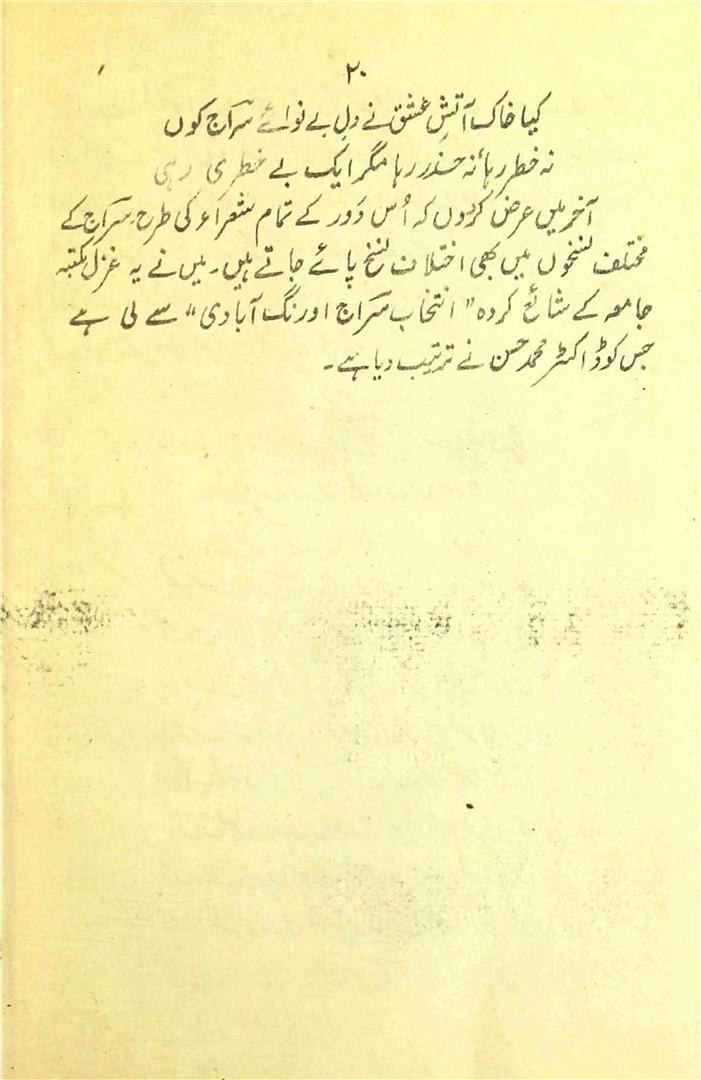 ۲۰
کیا خاک آتشِ عشق نے دلِ بے نوائے سراج کوں
نہ خطر رہا، نہ حذر رہا مگر ایک بے خطری رہی
آخر میں عرض کردوں کہ اُس دَور کے تمام شعراء کی طرح سراج کے
مختلف نسخوں میں بھی اختلاف نسخ پائے جاتے ہیں۔ میں نے یہ غزل مکتبہ
جامعہ کے شائع کردہ "انتخاب سراج اورنگ آبادی" سے لی ہے
جس کو ڈاکٹر محمد حسن نے ترتیب دیا ہے۔